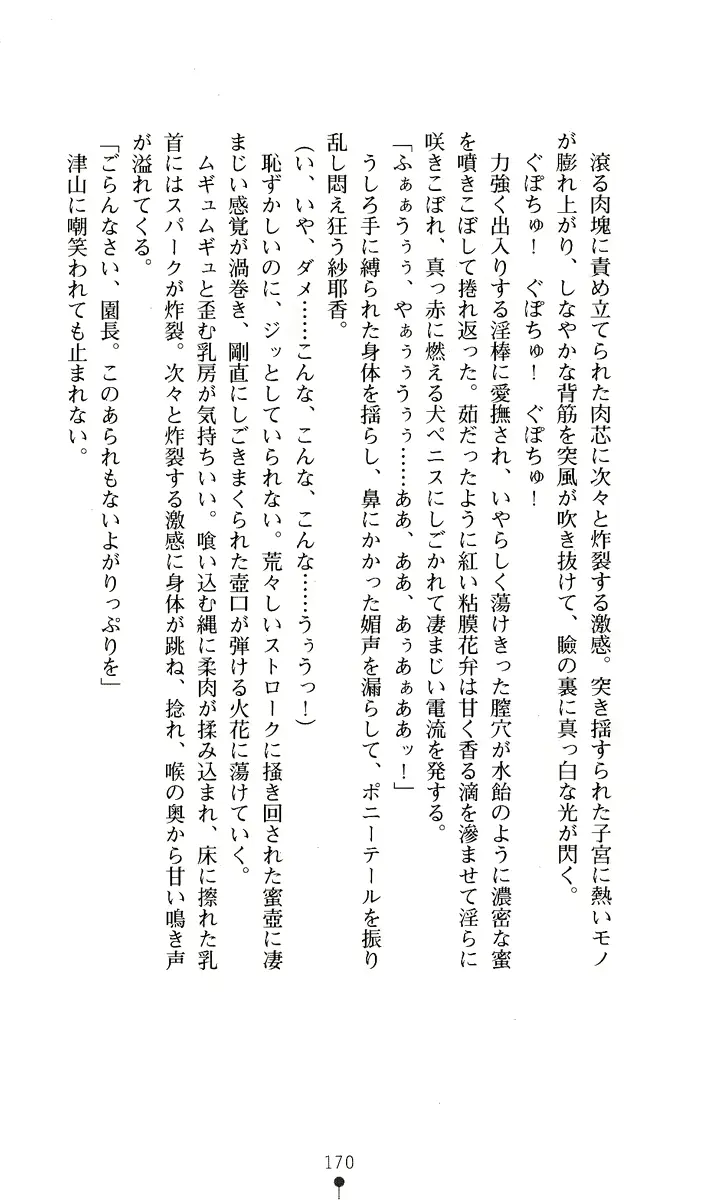 滾る肉塊に責め立てられた肉芯に次々と炸裂する激感。突き揺すられた子宮に熱いモノ
が膨れ上がり、しなやかな背筋を突風が吹き抜けて、瞼の裏に真っ白な光が閃く。
ぐぽちゅ！　ぐぽちゅ！　ぐぽちゅ！
力強く出入りする淫棒に愛撫され、いやらしく蕩けきった膣穴が水飴のように濃密な蜜
を噴きこぼして捲れ返った。茹だったように紅い粘膜花弁は甘く香る滴を滲ませて淫らに
咲きこぼれ、真っ赤に燃える犬ペニスにしごかれて凄まじい電流を発する。
「ふぁぁうぅぅ、やぁぅぅうぅぅ……ああ、ああ、あぅあぁああッ！」
うしろ手に縛られた身体を揺らし、鼻にかかった媚声を漏らして、ポニーテールを振り
乱し悶え狂う紗耶香。
（い、いや、ダメ……こんな、こんな、こんな……うぅうっ！）
恥ずかしいのに、ジッとしていられない。荒々しいストロークに掻き回された蜜壺に凄
まじい感覚が渦巻き、剛直にしごきまくられた壺口が弾ける火花に蕩けていく。
ムギュムギュと歪む乳房が気持ちいい。喰い込む縄に柔肉が揉み込まれ、床に擦れた乳
首にはスパークが炸裂。次々と炸裂する激感に身体が跳ね、捻れ、喉の奥から甘い鳴き声
が溢れてくる。
「ごらんなさい、園長。このあられもないよがりっぷりを」
津山に嘲笑われても止まれない。
170